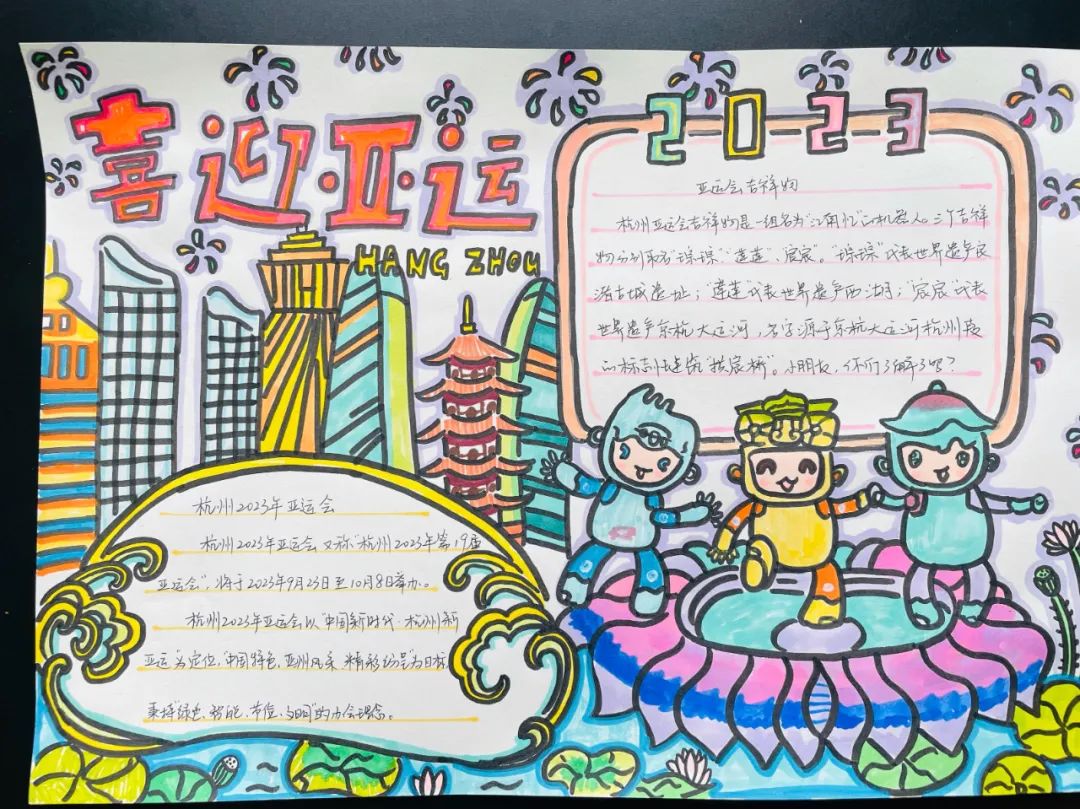 喜迎·亚·运
HANG ZHOU
2023
亚运会吉祥物
杭州亚运会吉祥物是一组名为"江南忆"的机器人。三个吉祥
物分别取名"琮琮"、"莲莲"、"宸宸"。"琮琮"代表世界遗产良
渚古城遗址；"莲莲"代表世界遗产西湖；"宸宸"代表
世界遗产京杭大运河，名字源于京杭大运河杭州段
的标志性建筑"拱宸桥"。小朋友，你们了解了吗？
杭州2023年亚运会
杭州2023年亚运会又称"杭州2023年第19届
亚运会"，将于2023年9月23日至10月8日举办。
杭州2023年亚运会以"中国新时代·杭州新
亚运"为定位，"中国特色、亚洲风采、精彩纷呈"为目标
秉持"绿色、智能、节俭、文明"的办会理念。